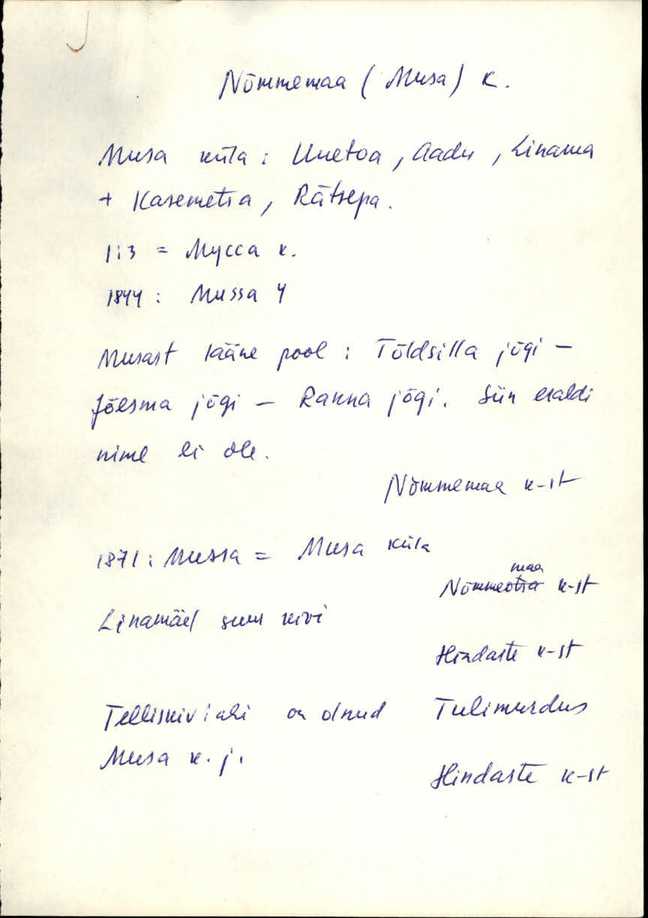 Nõmmemaa (Musa) k.
Musa küla: Uuetoa, Aadu, Linama
+ Kasemetsa, Rätsepa.
1:3 = Мусса к.
1844: Mussa 4
Musast lääne pool: Tõldsilla jõgi –
Jõesma jõgi – Ranna jõgi. Siin eraldi
nime ei ole.
Nõmmemaa k-st
1871: Mussa = Musa küla
Nõmmemaa k-st
Linamäel suur kivi
Hindaste k-st
Telliskiviahi on olnud Tulimurdus
Musa k. j.
Hindaste k-st